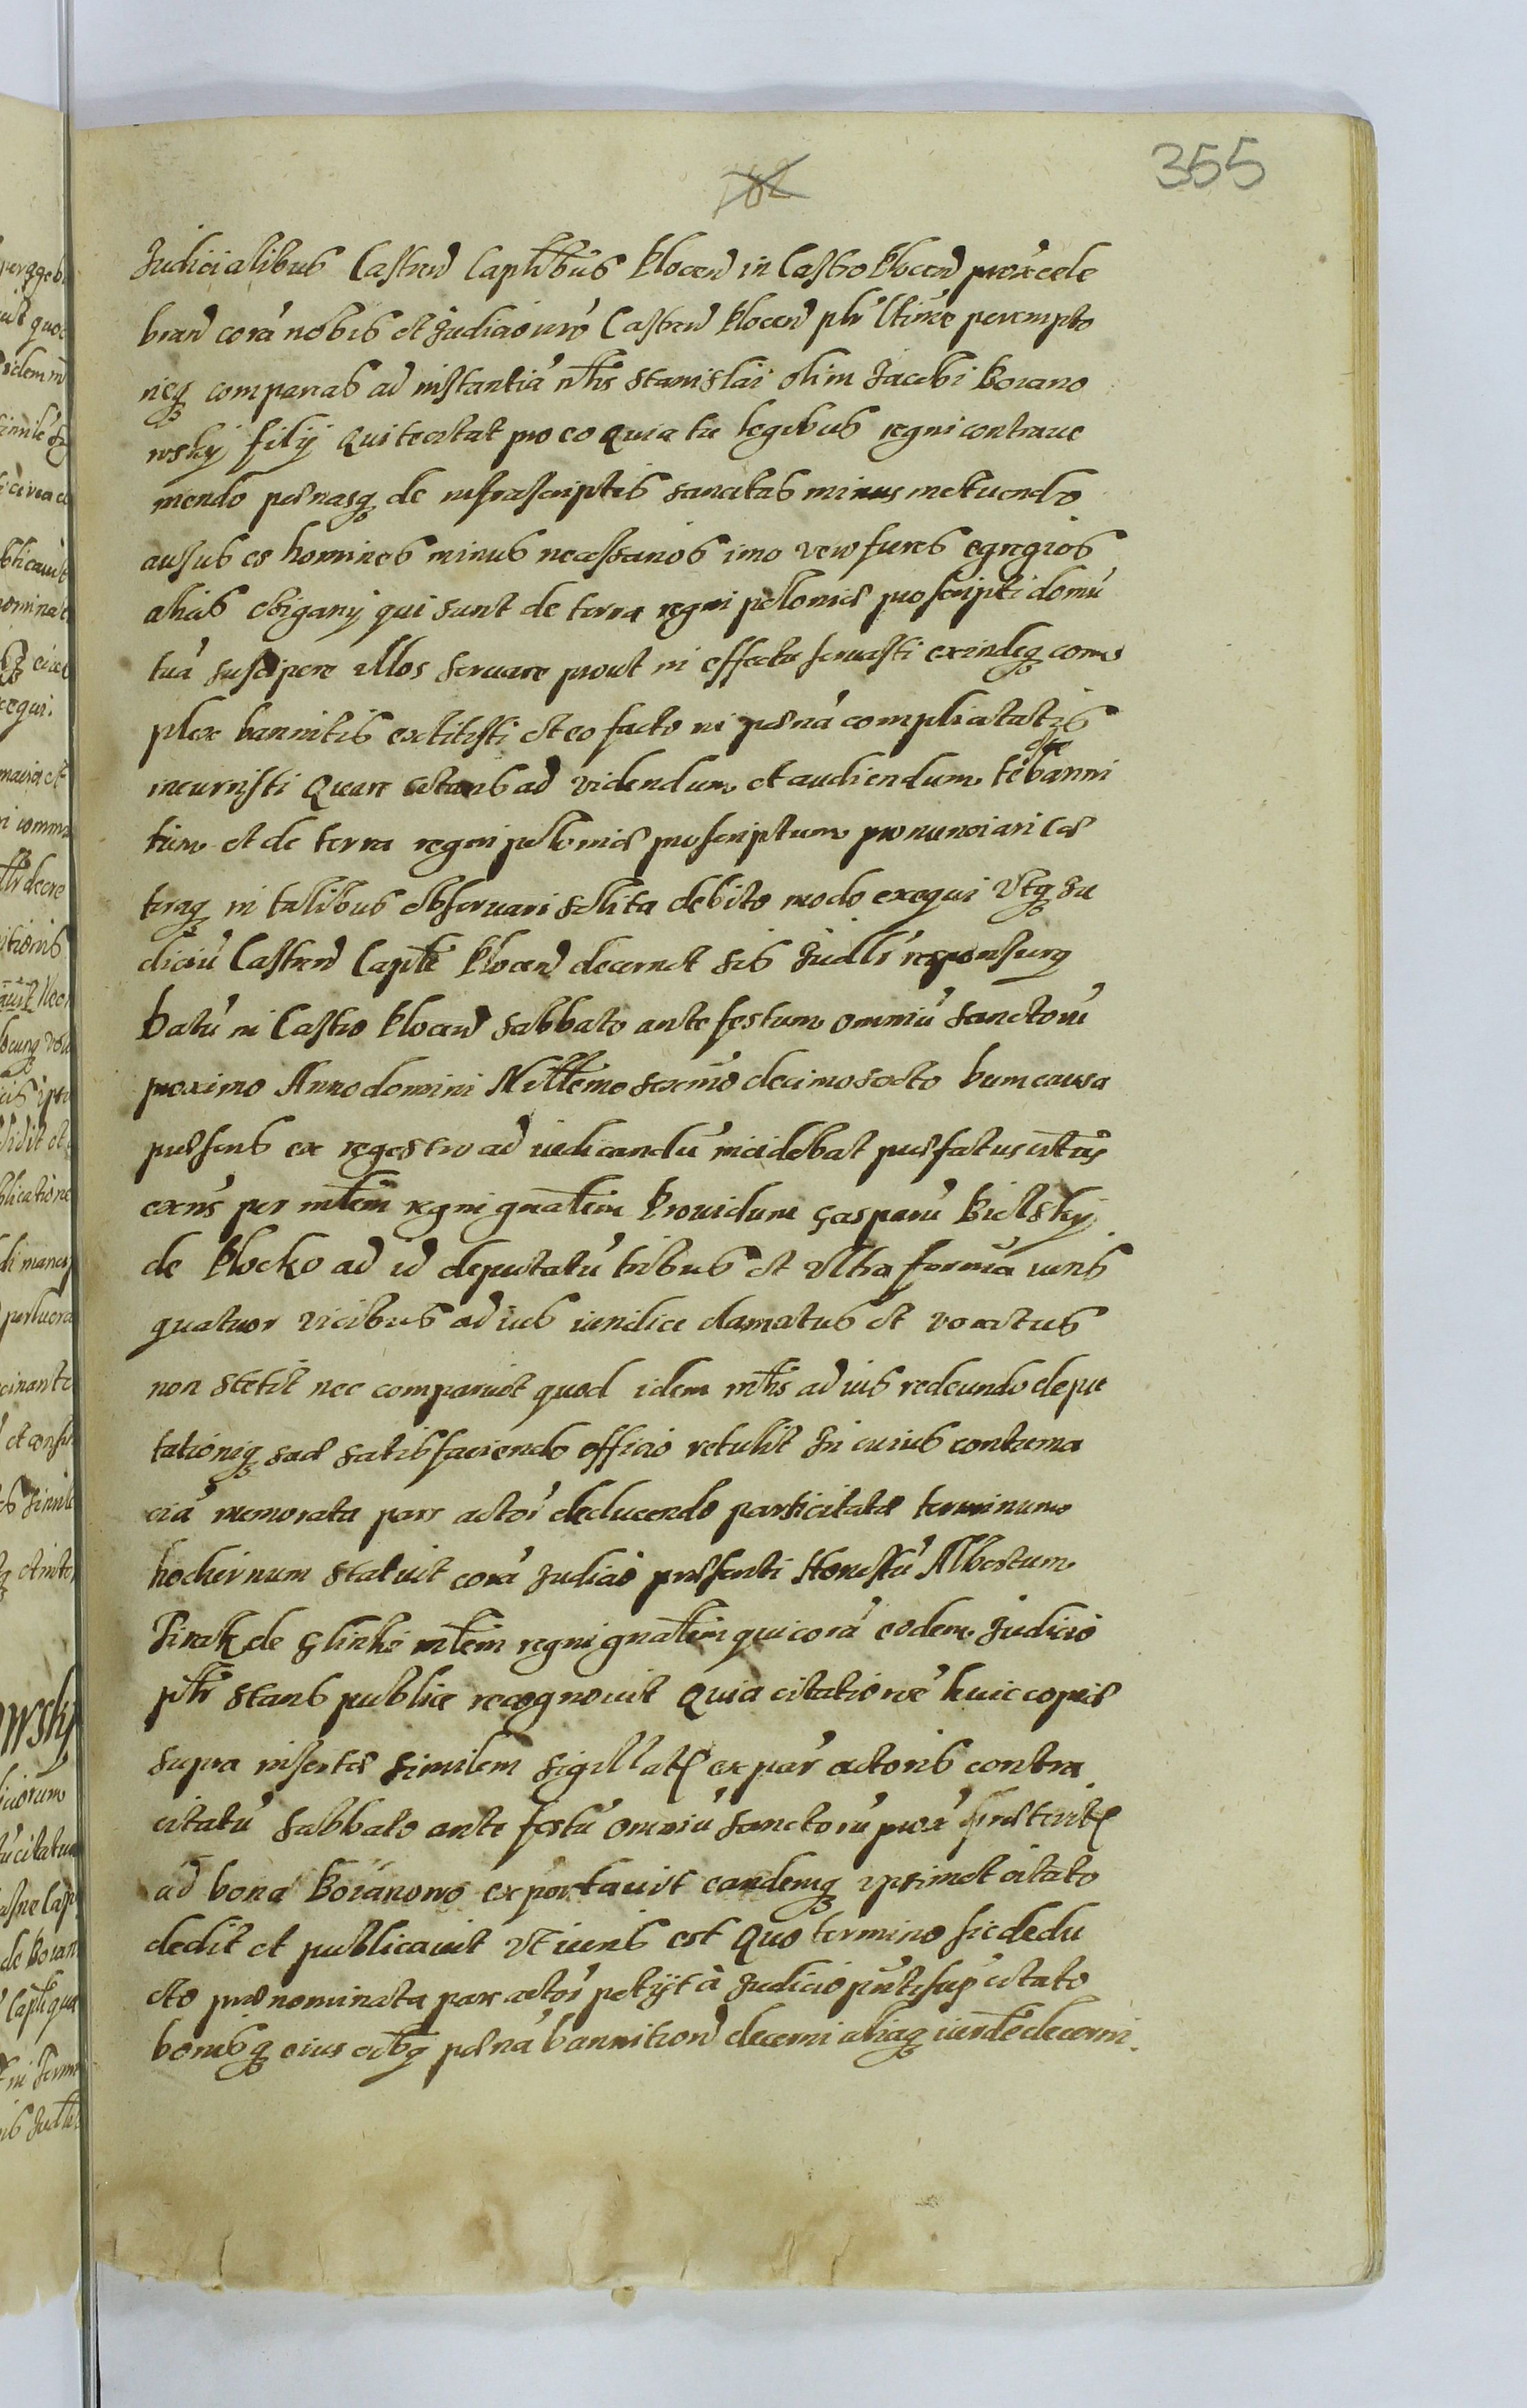 355
Judicialibus Castren Capltibus Plocen in Castro Plocen prox cele
bran corā nobis et Judicio nrō Castren Plocen plr ultime perempto
rieq compareas ad instantiā nblis Stanislai olim Jacobi Boiano
wsky filij Qui te citat pro eo Quia tu legibus regni contraue
niendo poenasq de infrascriptis sancitas minus metuendo
ausus es homines minus necessarios imo vero fures egregios
alias czigany qui sunt de terra regni poloniae proscripti domū
tuā suscipere illos seruare prout in effectu seruasti exindeq com
plex bannitis extitisti et eo facto in poenā complicitatis
incurristi Quare citaris ad videndum et audiendum te esse banni
tum et de terra regni poloniae proscriptum pronunciari cae
teraq in talibus obseruari solita debito modo exequi Utq Ju
diciū Castren Capltle Plocen decernet sis Judlr responsurq
Datū in Castro Plocen sabbato ante festum omniū sanctorū
proximo Anno domini Millemo sexmo decimosexto Dum causa
praesens ex regestro ad iudicandū incidebat praefatus citatus
exns per mlem regni gnalem Prouidum Gasparū Bielsky
de Plocko ad id deputatū tribus et ultra formā iuris
quatuor vicibus ad ius iuridice clamatus et vocatus
non stetit nec comparuit quod idem mlis ad ius redeundo depu
tationiq suae satisfaciendo officio retulit In cuius contuma
ciā memorata pars actor deducendo parti citatae terminum
hodiernum statuit corā Judicio praesenti Honestū Albertum
Pirak de Glinki mlem regni gnalem qui corā eodem Judicio
plr stans publice recognouit Quia citationē huic copiae
supra insertae similem sigillat ex par actoris contra
citatū sabbato ante festū omniū sanctorū prox praeterit
ad bona Boianowo exportauit eandemq ipsimet citato
dedit et publicauit Ut iuris est Quo termino sic dedu
cto praenominata pars actor petijt à Judicio pnti sup citato
bonisq eius oibq poenā bannition decerni aliaq iuxte decerni.